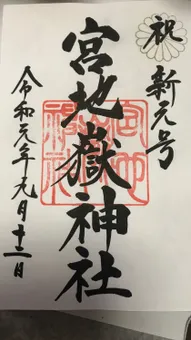 祝
新元号
宮地嶽神社
令和元年九月十二日